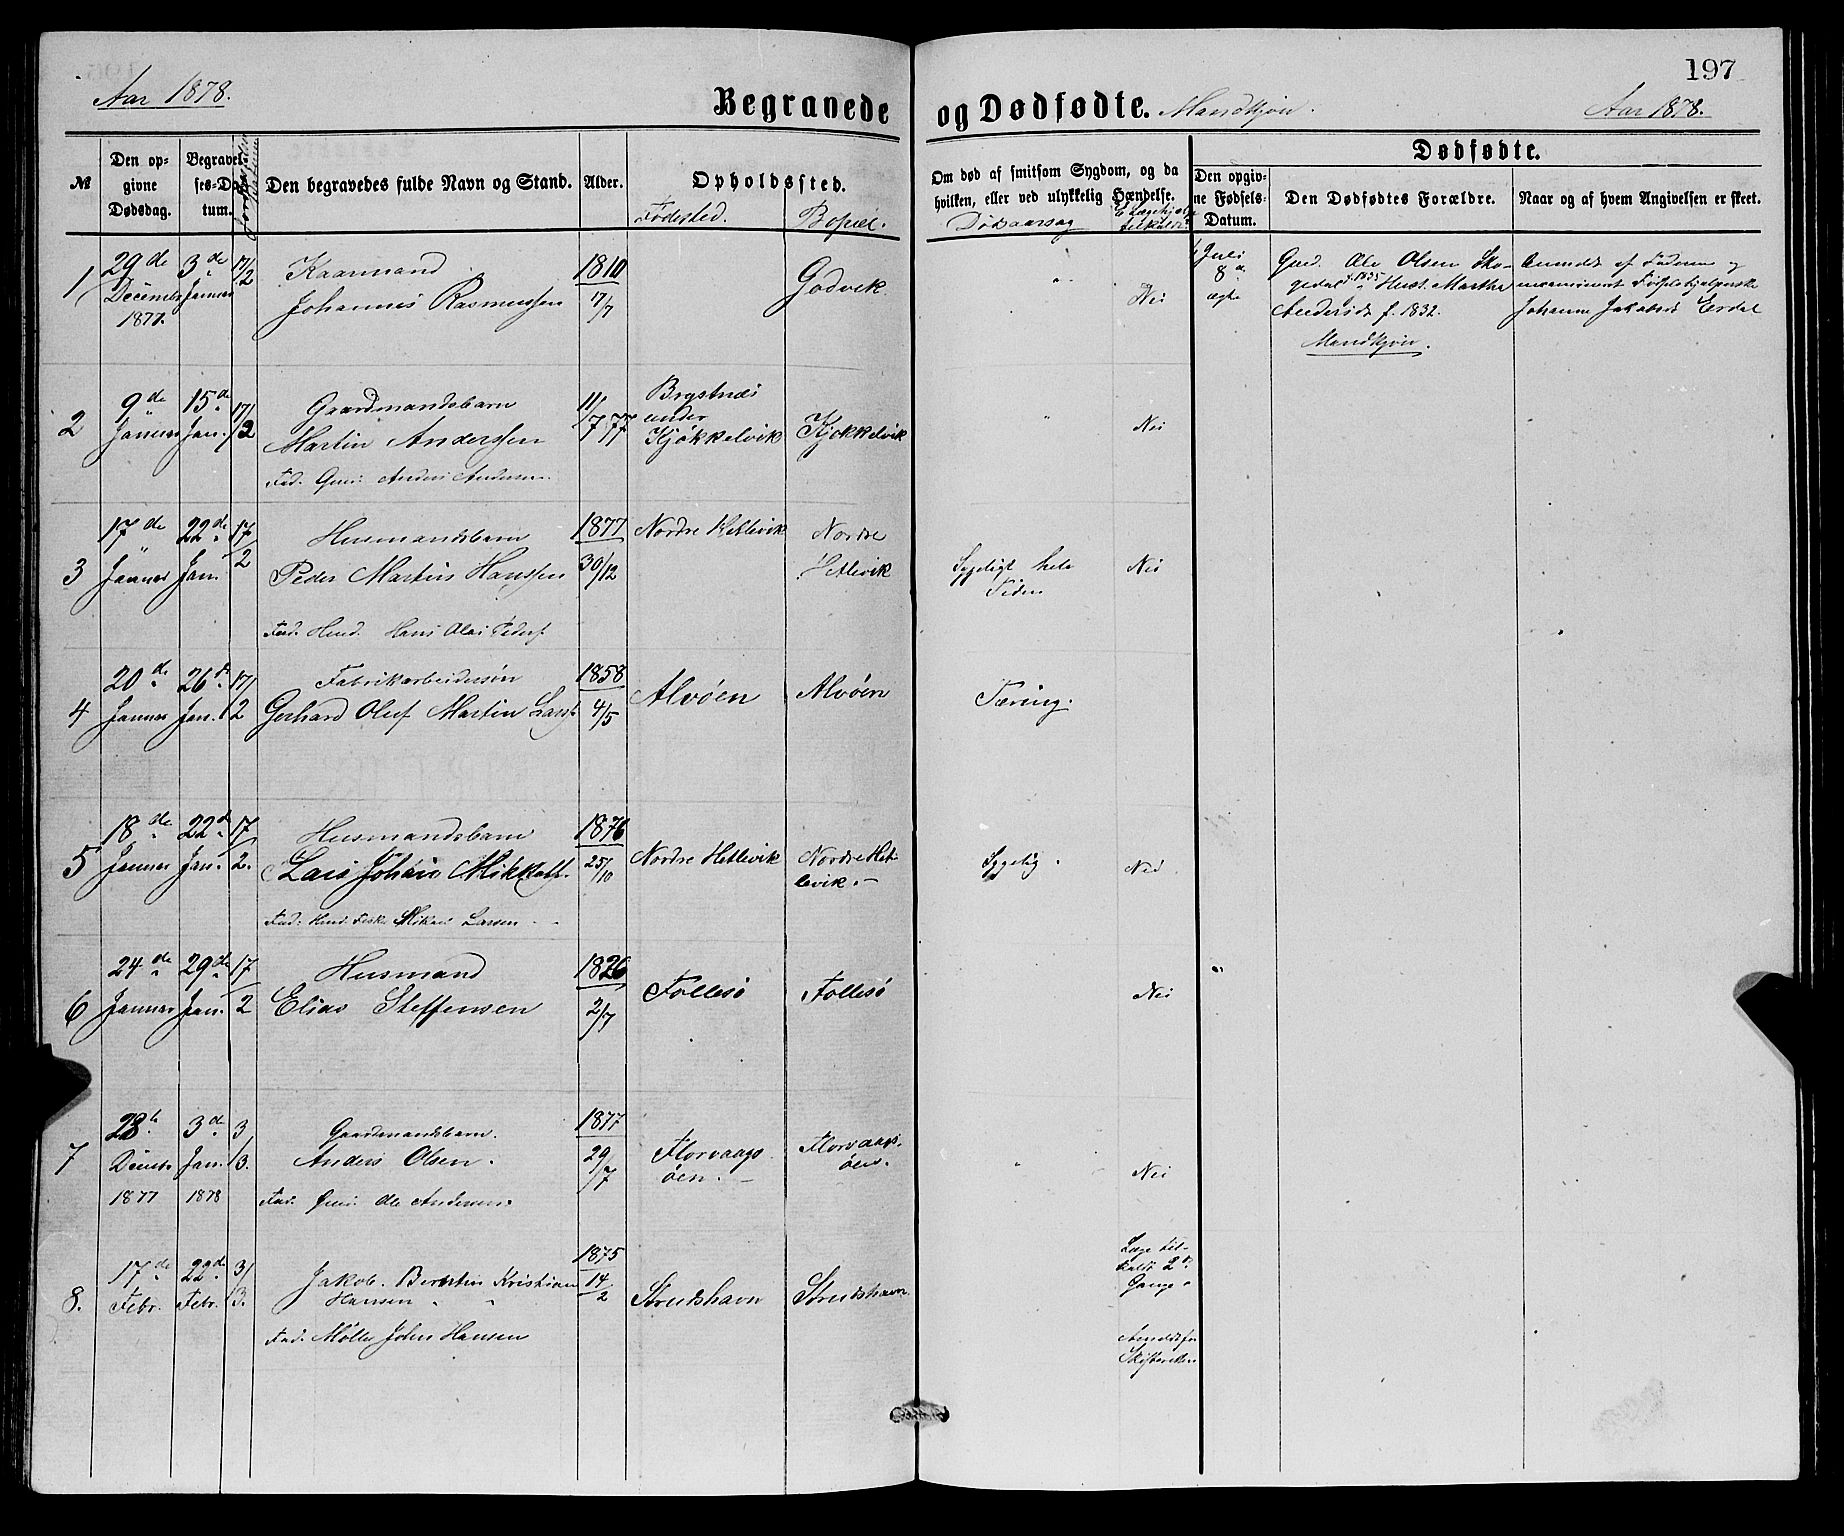 197
Aar 1878.
Begravede og Dødfødte. Mandkjøn.
Aar 1878.
№
Den op-
givne
Dødsdag.
Begravel-
ses-Da-
tum.
Den begravedes fulde Navn og Stand.
Alder.
Opholdssted.
Fødested.
Bopæl.
Om død af smitsom Sygdom, og da
hvilken, eller ved ulykkelig Hændelse.
Dødsaarsag
Er Lægehjælp
tilkaldt
Dødfødte.
Den opgiv-
ne Fødsels-
Datum.
Den Dødfødtes Forældre.
Naar og af hvem Angivelsen er skeet.
1
29de
December
1877.
3de
Januar
17/2
Kaarmand
Johannes Rasmussen
1810
17/7
Godvik
"
Nei
Juli
8
ægte
Gmd. Ole Olsen Sko-
gedal f. 1835 Hust. Martha
Andersdr f. 1832.
Mandkjøn.
Anmeldt af Faderen og
uexamineret Fødselshjelperske
Johanne Jakobsdr Erdal
2
9de
Januar
15de
Jan.
17/2
Gaardmandsbarn
Martin Anderssen
Fad. Gmd. Anders Andersen
11/7 77
Brystnæs
under
Kjøkkelvik
Kjøkkelvik
"
Nei
3
17de
Januar
22de
Jan.
17/2
Husmandsbarn
Peder Martin Hanssen
Fad. Hmd. Hans Olai Peders.
1877
30/12
Nordre Hetlevik
Nordre
Hetlevik
Sygeligt hele
Tiden
Nei
4
20de
Januar
26de
Jan.
17/2
Fabrikarbeidersøn
Gerhard Oluf Martin Larss.
1858
4/5
Alvøen
Alvøen
Tæring.
5
18de
Januar
22de
Jan.
17/2.
Husmandsbarn
Lars Johan Mikkels.
Fad. Hmd. Fisker Mikkel Larsen
1876
25/10
Nordre Hetlevik
Nordre Het-
levik.
Sygelig
Nei
6
24de
Januar
29de
Jan.
17/2
Husmand
Elias Steffensen
1826
2/7
Follesø
Follesø
Nei
7
28de
Decmbr.
1877
3de
Jan.
1878
3/3.
Gaardmandsbarn.
Anders Olsen.
Fad. Gmd. Ole Andersen.
1877
29/7
Florvaags
øen.
Florvaags-
øen.
"
Nei
8.
17de
Febr.
22de
Febr.
3/3.
Jakob Kristian
Hansen
Fad. Møller John Hansen
1875
14/2
Strudshavn
Strudshavn
Læge til-
kaldt 2
Gange
Anmeldt for
Skifteretten